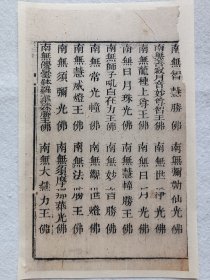 南無智慧勝佛　南無彌勒仙光佛
南無善寂月音妙尊智王佛　南無世淨光佛
南無龍種上尊王佛　南無日月光佛
南無日月珠光佛　南無慧幢勝王佛
南無師子吼自在力王佛　南無妙音勝佛
南無常光幢佛　南無觀世燈佛
南無慧威燈王佛　南無法勝王佛
南無須彌光佛　南無須摩那華光佛
南無優曇鉢羅華殊勝王佛　南無大慧力王佛